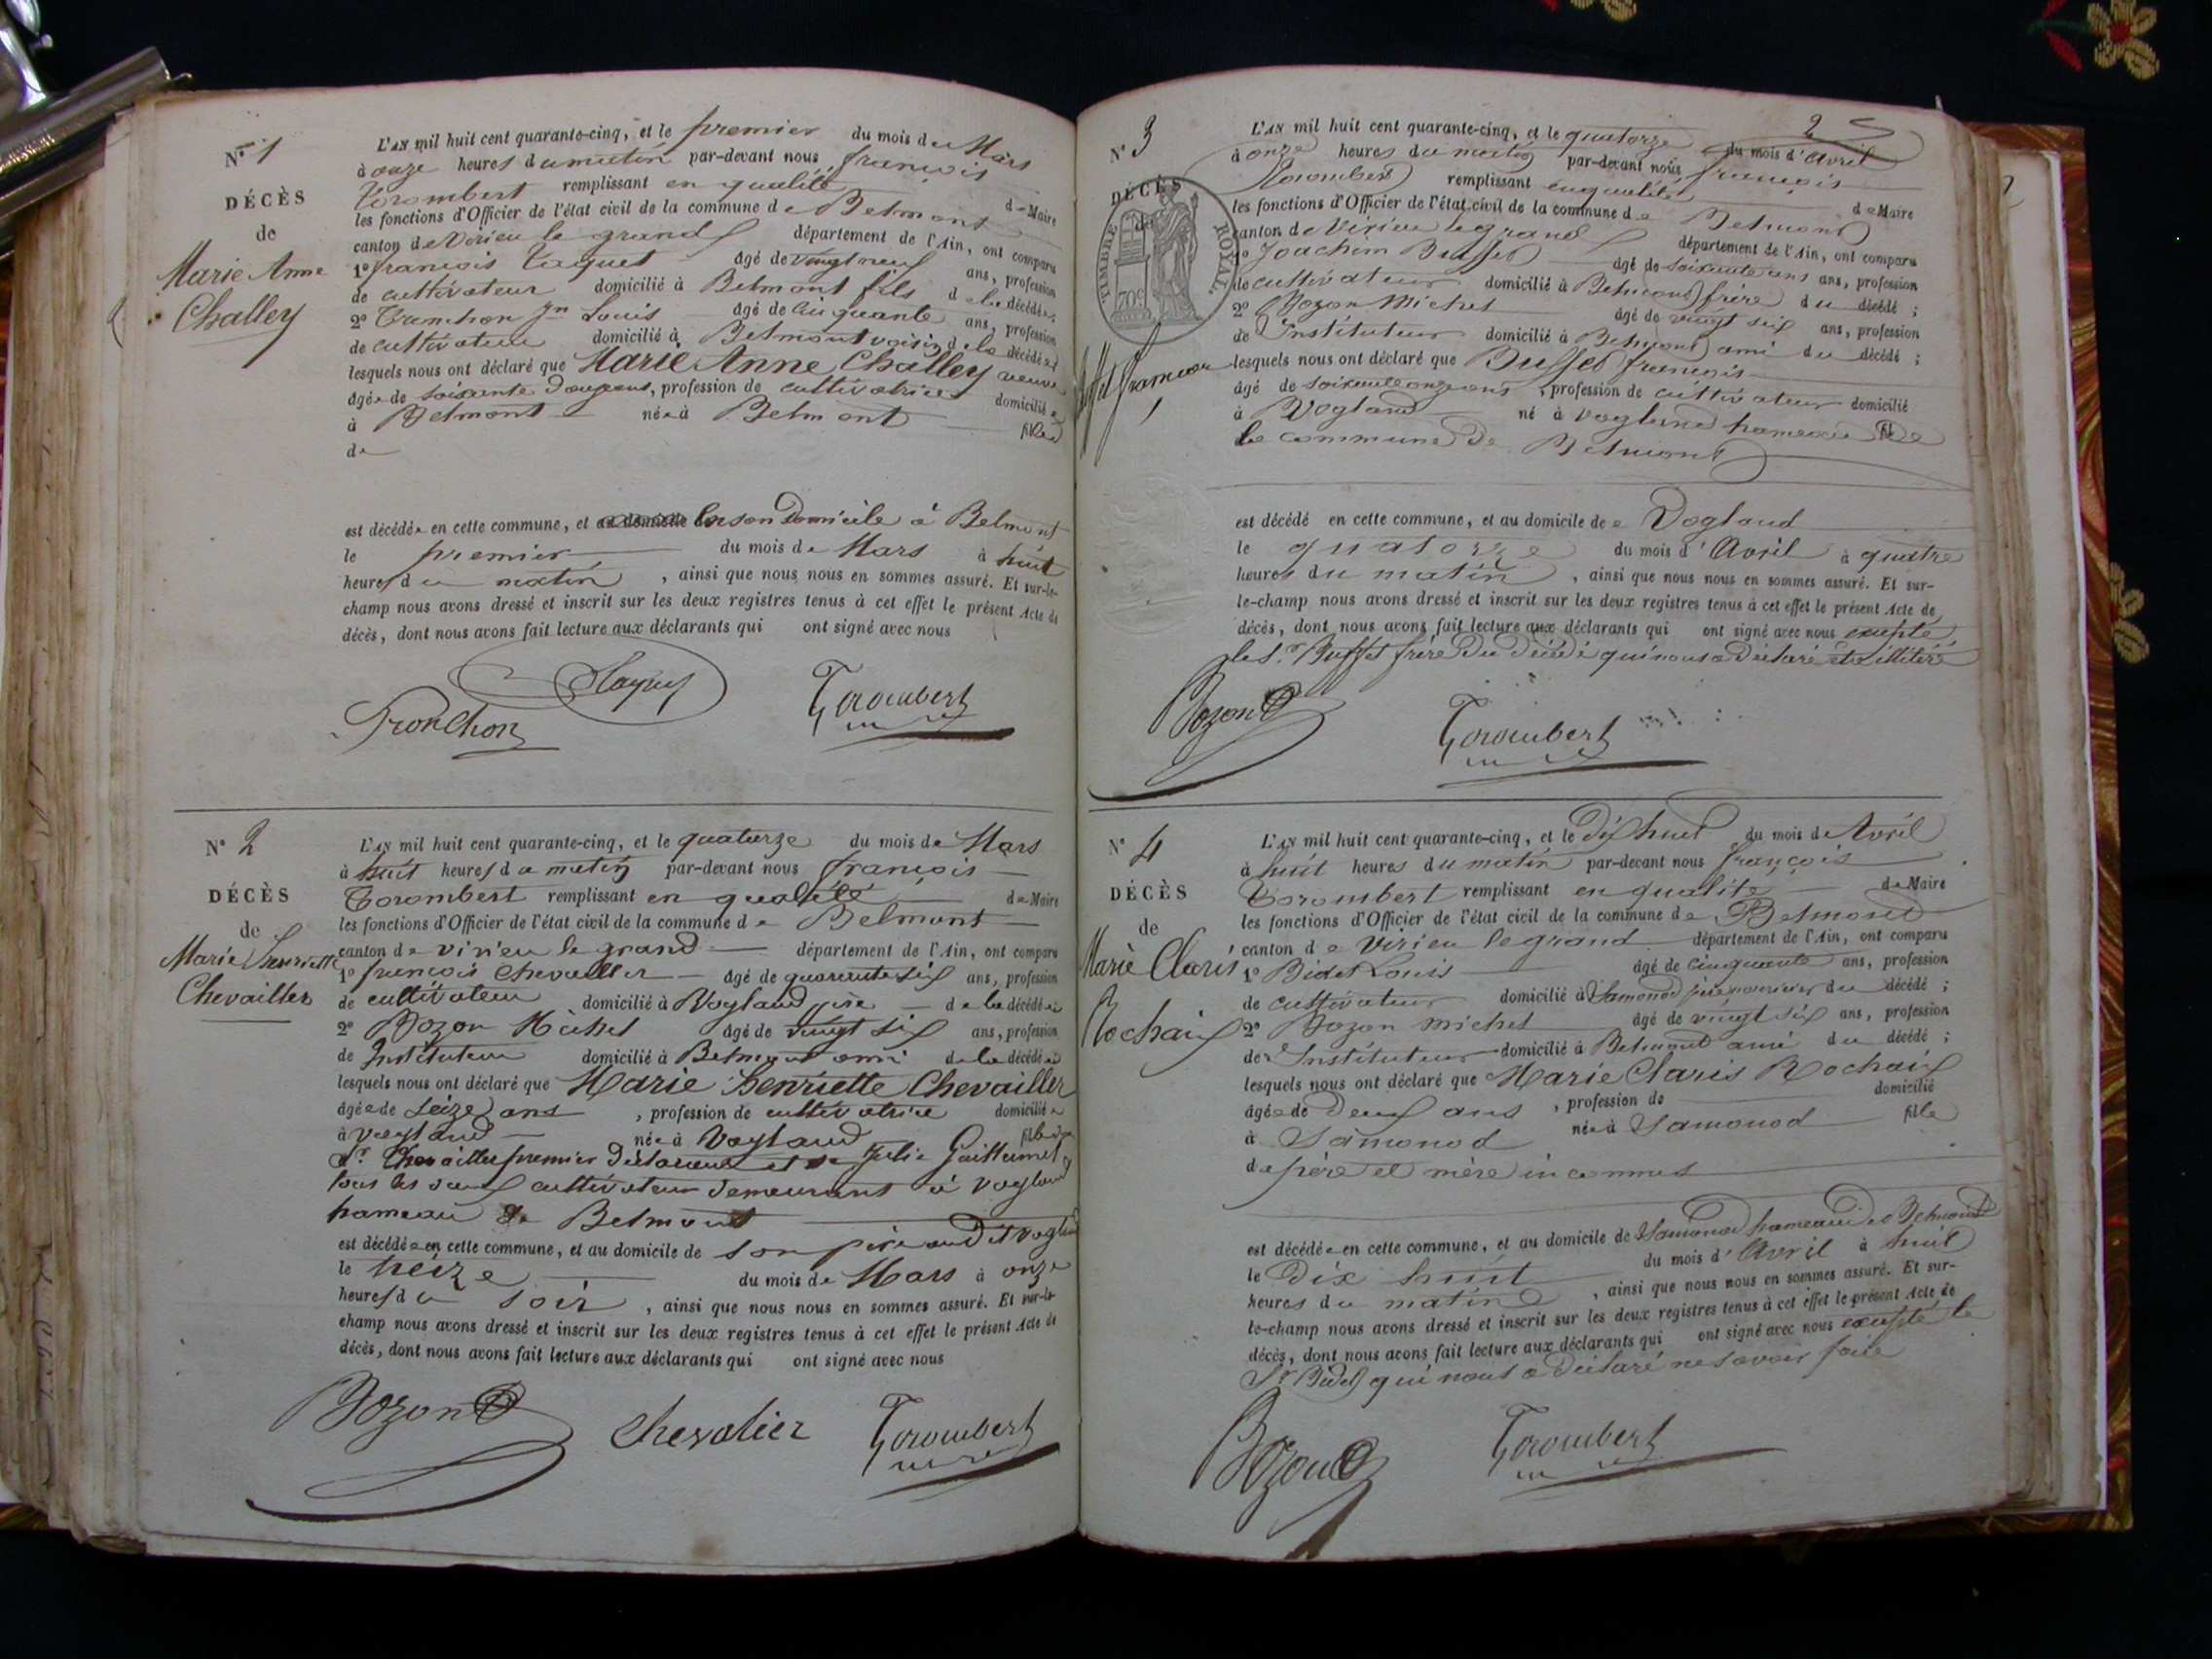 N° 1
DÉCÈS
de
Marie Anne
Challey
L'AN mil huit cent quarante-cinq, et le premier du mois de Mars
à onze heures du matin par-devant nous françois
Torombert remplissant en qualité de Maire
les fonctions d'Officier de l'état civil de la commune de Belmont
canton de Virieu le grand département de l'Ain, ont comparu
1° françois âgé de vingt neuf ans, profession
de cultivateur domicilié à Belmont fils de la décédée;
2° Louis âgé de cinquante ans, profession
de cultivateur domicilié à Belmont voisin de la décédée
lesquels nous ont déclaré que Marie Anne Challey veuve
âgée de soixante ans, profession de cultivatrice domiciliée
à Belmont née à Belmont fille
de
est décédée en cette commune, et en son Domicile à Belmont
le premier du mois de Mars à huit
heures du matin, ainsi que nous nous en sommes assuré. Et sur-le-
champ nous avons dressé et inscrit sur les deux registres tenus à cet effet le présent Acte de
décès, dont nous avons fait lecture aux déclarants qui ont signé avec nous
Tronchon Torombert
N° 2
DÉCÈS
de
Marie Henriette
Chevailler
L'AN mil huit cent quarante-cinq, et le quatorze du mois de Mars
à huit heures du matin par-devant nous françois
Torombert remplissant en qualité de Maire
les fonctions d'Officier de l'état civil de la commune de Belmont
canton de virieu le grand département de l'Ain, ont comparu
1° françois Chevailler âgé de quarante six ans, profession
de cultivateur domicilié à Vogland père de la décédée
2° Bozon Michel âgé de vingt six ans, profession
de Instituteur domicilié à Belmont ami de la décédée
lesquels nous ont déclaré que Marie Henriette Chevailler
âgée de seize ans, profession de cultivatrice domiciliée
à vogland née à Vogland fille
Sr Chevailler premier Déclarant et de Julie Guillaumet
tous les deux cultivateur demeurant à vogland
hameau de Belmont
est décédée en cette commune, et au domicile de son père audit vogland
le treize du mois de Mars à onze
heures du soir, ainsi que nous nous en sommes assuré. Et sur-le-
champ nous avons dressé et inscrit sur les deux registres tenus à cet effet le présent Acte de
décès, dont nous avons fait lecture aux déclarants qui ont signé avec nous
Bozon chevalier Torombert
2
N° 3
DÉCÈS
de
TIMBRE ROYAL
70c
Buffet françois
L'AN mil huit cent quarante-cinq, et le quatorze du mois d'Avril
à onze heures du matin par-devant nous françois
Torombert remplissant en qualité de Maire
les fonctions d'Officier de l'état civil de la commune de Belmont
canton de Virieu le grand département de l'Ain, ont comparu
1° Joachim Buffet âgé de soixante ans ans, profession
de cultivateur domicilié à Belmont frère du décédé;
2° Bozon Michel âgé de vingt six ans, profession
de Instituteur domicilié à Belmont ami du décédé;
lesquels nous ont déclaré que Buffet françois
âgé de soixante onze ans, profession de cultivateur domicilié
à Vogland né à vogland hameau de
la commune de Belmont
est décédé en cette commune, et au domicile de Vogland
le quatorze du mois d'Avril à quatre
heures du matin, ainsi que nous nous en sommes assuré. Et sur-
le-champ nous avons dressé et inscrit sur les deux registres tenus à cet effet le présent Acte de
décès, dont nous avons fait lecture aux déclarants qui ont signé avec nous excepté
le Sr Buffet frère du décédé qui nous a déclaré
Bozon Torombert
N° 4
DÉCÈS
de
Marie Claris
Rochaix
L'AN mil huit cent quarante-cinq, et le dix huit du mois de Avril
à huit heures du matin par-devant nous françois
Torombert remplissant en qualité de Maire
les fonctions d'Officier de l'état civil de la commune de Belmont
canton de Virieu le grand département de l'Ain, ont comparu
1° Bidet Louis âgé de cinquante ans, profession
de cultivateur domicilié à Samonod père nourricier du décédé;
2° Bozon Michel âgé de vingt six ans, profession
de Instituteur domicilié à Belmont ami du décédé;
lesquels nous ont déclaré que Marie Claris Rochaix
âgée de Deux ans, profession de domicilié
à Samonod née à Samonod fille
de père et mère inconnus
est décédée en cette commune, et au domicile de Samonod hameau de Belmont
le Dix huit du mois d'Avril à huit
heures du matin, ainsi que nous nous en sommes assuré. Et sur-
le-champ nous avons dressé et inscrit sur les deux registres tenus à cet effet le présent Acte de
décès, dont nous avons fait lecture aux déclarants qui ont signé avec nous excepté le
Sr Bidet qui nous a déclaré ne savoir faire
Bozon Torombert